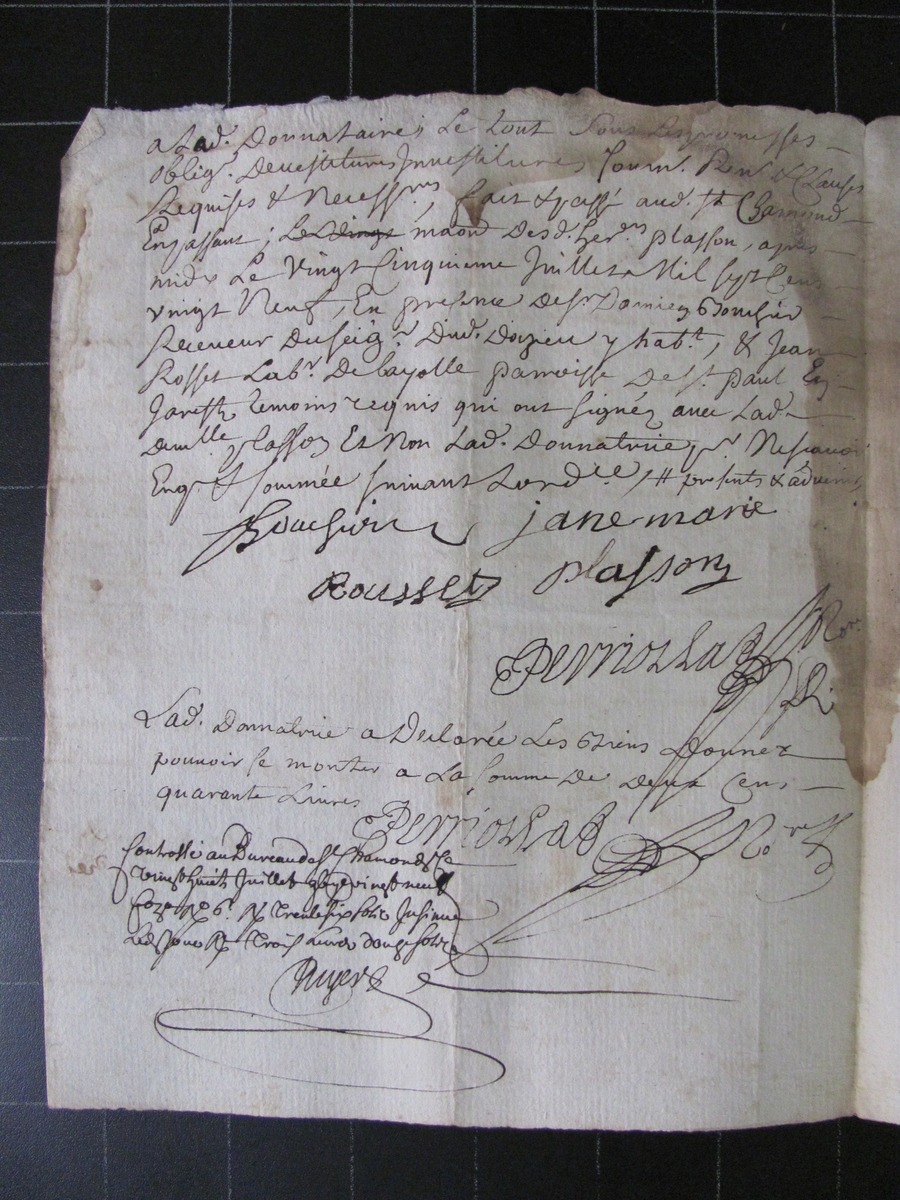 a Lad. Donnataire; Le tout sous Les promesses
oblig. Devestitures Jnvestitures soum. Ren. & Clauses
Requises & Necessres, fait & passé aud. st Chamond
En passant; Le vingt maon Desd. plasson, apres
midy Le Vingt Cinquieme Juillet Mil sept Cens
vingt Neuf, En presence De sr Bouchier
Receveur Du seigr. Dud. Doizieu y habt., & Jean
Rosset Labr. De layolle parroisse De st. paul En
Jarest temoins requis qui ont signéz avec Lad.
demlle plasson Et Non Lad. Donnatrice pr. Ne sçavoir
Enq. & sommée suivant Lord presents
Bouchier jane marie
Rousset plasson
Lad. Donnatrice a Declarée Les Biens Donnez
pouvoir se monter a La somme De Deux Cens
quarante Livres
Controllé au Bureau de st Chamond Le
vingt huit Juillet vingt neuf
trente six solz Jnsinue
trois livres douze solz